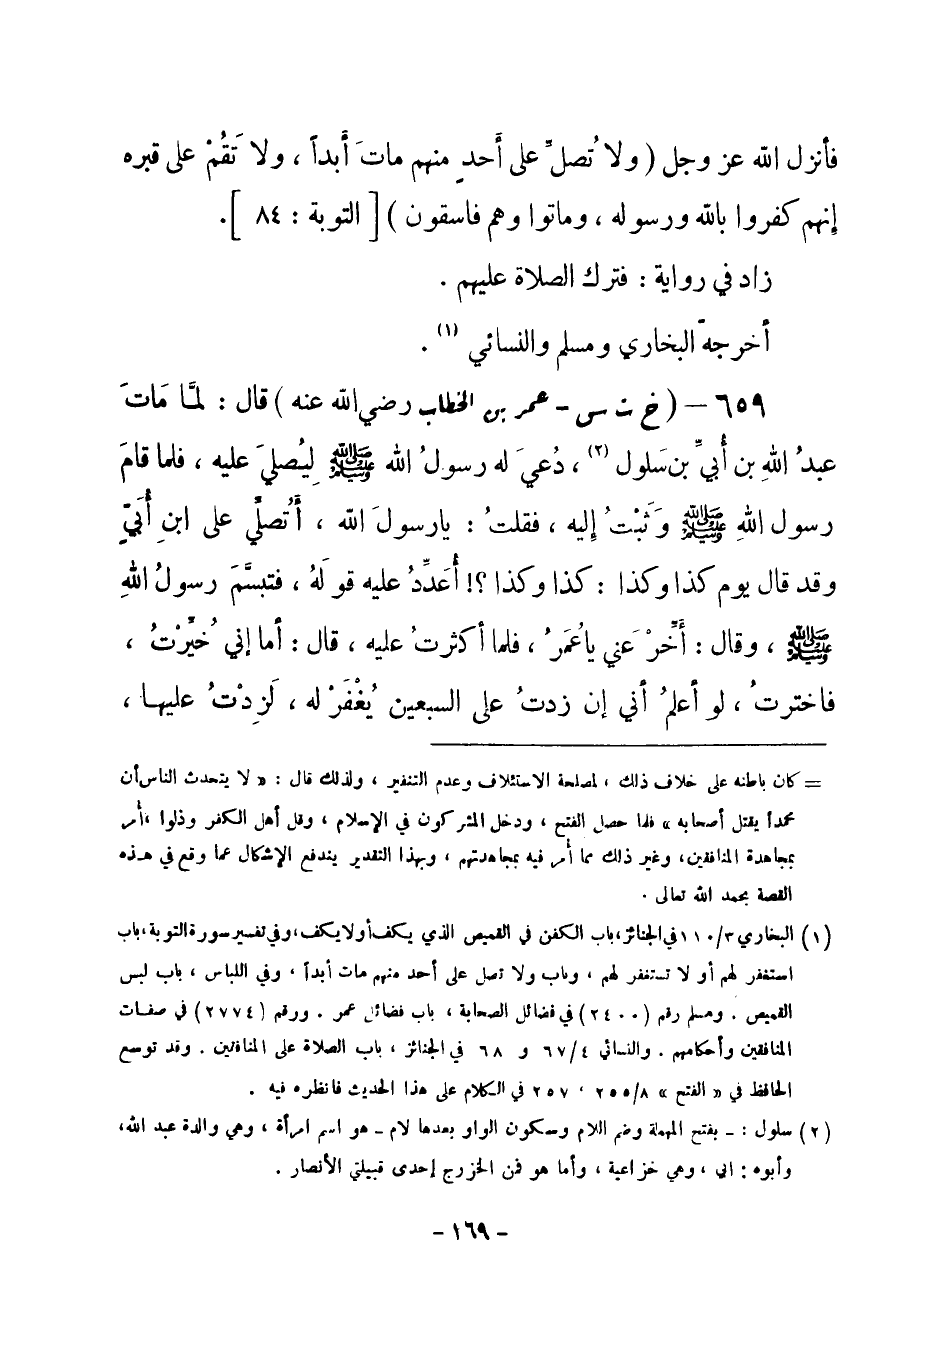 فأنزل الله عز وجل ( ولا تُصلِّ على أَحدٍ منهم ماتَ أَبداً ، ولا تَقُمْ على قبره
إنهم كفروا بالله ورسوله ، وماتوا وهم فاسقون ) [ التوبة : ٨٤ ] .
زاد في رواية : فترك الصلاة عليهم .
أخرجه البخاري ومسلم والنسائي (١) .
٦٥٩ – ( خ ت س – عمر بن الخطاب رضي الله عنه ) قال : لمَّا مَاتَ
عبدُ اللهِ بن أُبيِّ بن سَلول (٢) ، دُعيَ له رسولُ الله ﷺ لِيُصليَ عليه ، فلما قامَ
رسول اللهِ ﷺ وَثَبْتُ إليه ، فقلتُ : يارسولَ الله ، أَتُصلِّي على ابنِ أُبَيٍّ
وقد قال يوم كذا وكذا : كذا وكذا ؟! أُعَدِّدُ عليه قولَهُ ، فتبسَّمَ رسولُ اللهِ
ﷺ ، وقال : أَخِّرْ عَني ياعُمَرُ ، فلما أكثرتُ عليه ، قال : أما إني خُيِّرْتُ ،
فاخترتُ ، لو أعلمُ أني إن زدتُ على السبعين يُغْفَرْ له ، لَزِدْتُ عليهـا ،
= كان باطنه على خلاف ذلك ، لمصلحة الاستئلاف وعدم التنفير ، ولذلك قال : « لا يتحدث الناس أن
محمداً يقتل أصحابه » فلما حصل الفتح ، ودخل المشركون في الإسلام ، وقل أهل الكفر وذلوا ، أمر
بمجاهدة المنافقين، وغير ذلك مما أمر فيه بمجاهدتهم ، وبهذا التقدير يندفع الإشكال عما وقع في هـذه
القصة بحمد الله تعالى .
(١) البخاري ٣/ ١١٠ في الجنائز، باب الكفن في القميص الذي يكف أو لا يكف، وفي تفسير سورة التوبة، باب
استغفر لهم أو لا تستغفر لهم ، وباب ولا تصل على أحد منهم مات أبداً ، وفي اللباس ، باب لبس
القميص . ومسلم رقم (٢٤٠٠) في فضائل الصحابة ، باب فضائل عمر . ورقم (٢٧٧٤) في صفـات
المنافقين وأحكامهم . والنسائي ٤/ ٦٧ و ٦٨ في الجنائز ، باب الصلاة على المنافقين . وقد توسع
الحافظ في « الفتح » ٨/ ٢٥٥ ، ٢٥٧ في الكلام على هذا الحديث فانظره فيه .
(٢) سلول : – بفتح المهملة وضم اللام وسكون الواو بعدها لام – هو اسم امرأة ، وهي والدة عبد الله،
وأبوه : ابي ، وهي خزاعية ، وأما هو فمن الخزرج إحدى قبيلتي الأنصار .
– ١٦٩ –